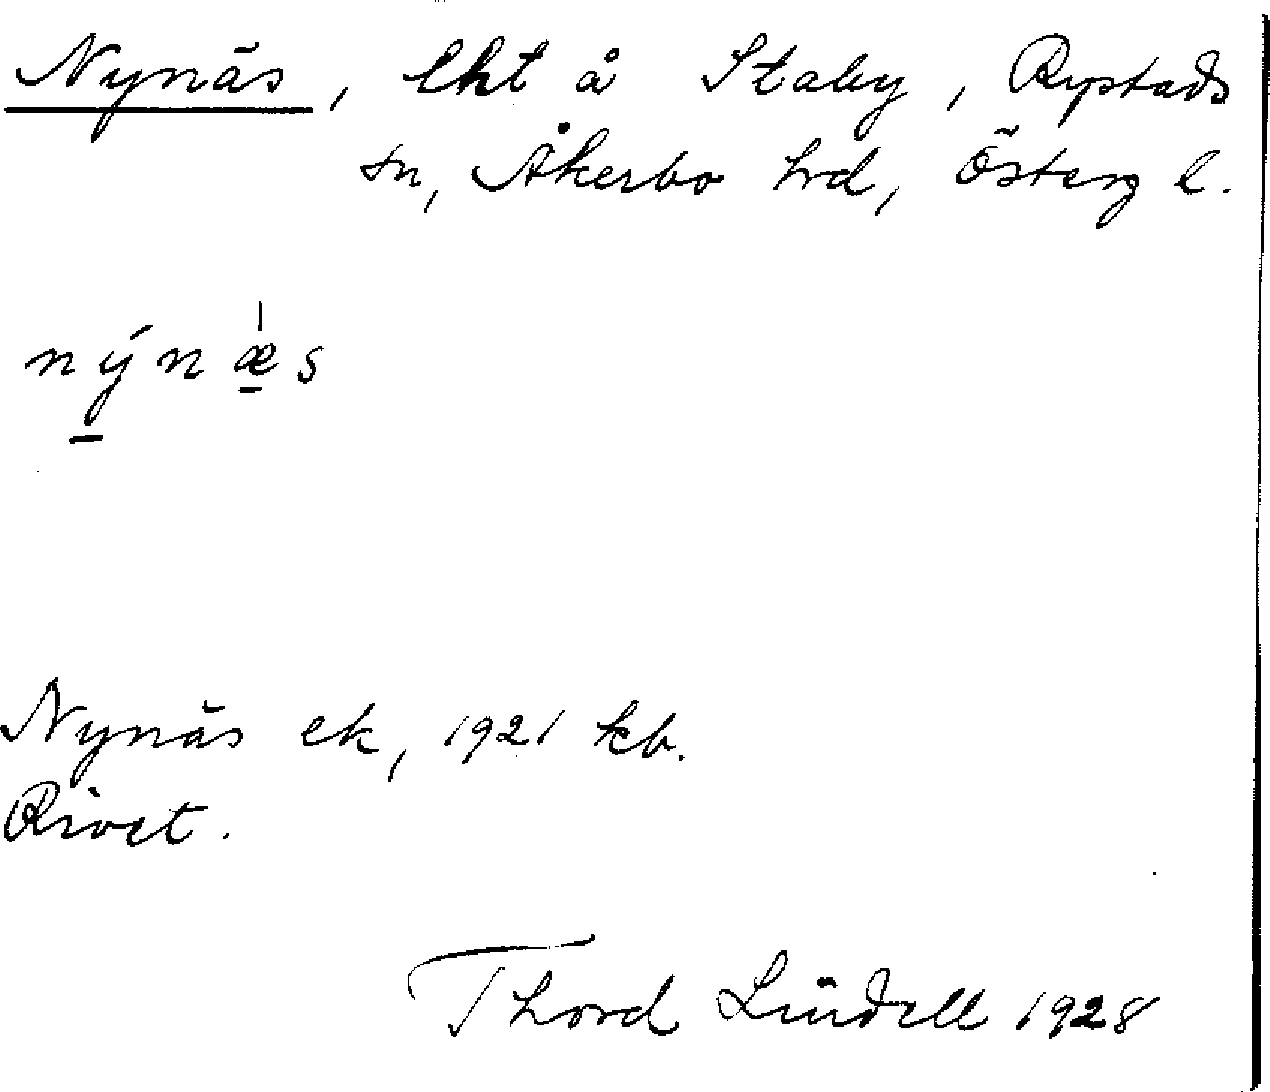 Nynäs, lht å Staby, Rystads
sn, Åkerbo hrd, Österg l.
nýnæ̱s
Nynäs ek, 1921 kb.
Rivet.
Thord Lindell 1928